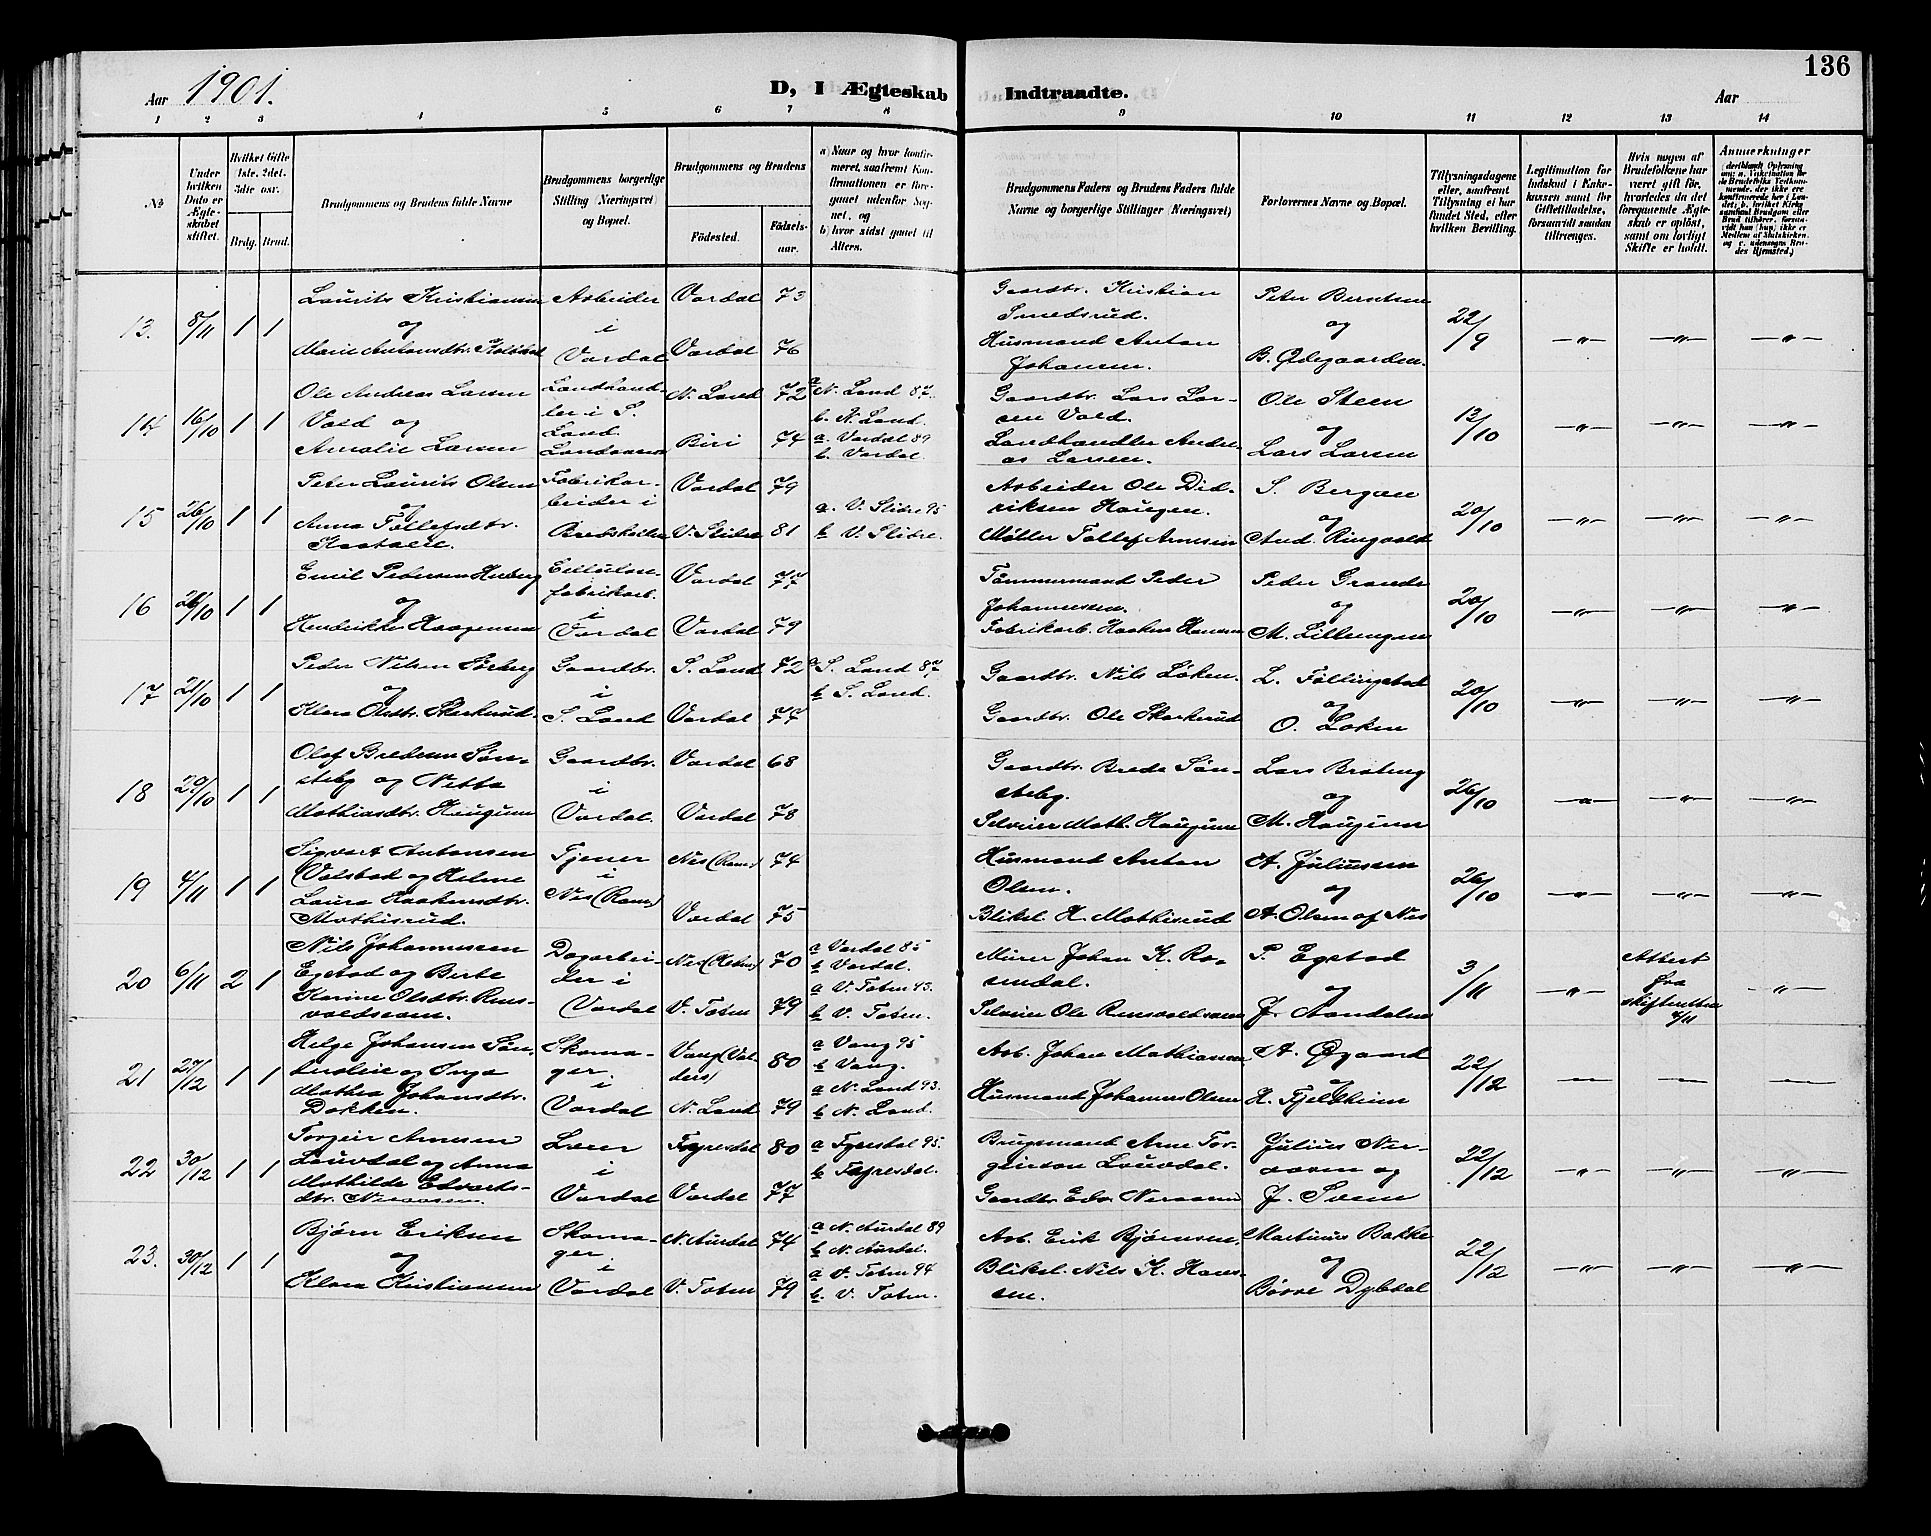 136
Aar 1901. D, I Ægteskab Indtraadte. Aar
1 2 3 4 5 6 7 8 9 10 11 12 13 14
No
Under hvilken Dato er Ægteskabet stiftet.
Hvilket Gifte 1ste, 2det, 3die osv.
Brdg. Brud.
Brudgommens og Brudens fulde Navne
Brudgommens borgerlige Stilling (Næringsvei) og Bopæl.
Brudgommens og Brudens
Fødested. Fødselsaar.
a) Naar og hvor konfirmeret, saafremt Konfirmationen er foregaaet udenfor Sognet, og
b) hvor sidst gaaet til Alters.
Brudgommens Faders og Brudens Faders fulde Navne og borgerlige Stillinger (Næringsvei)
Forlovernes Navne og Bopæl.
Tillysningsdagene eller, saafremt Tillysning ei har fundet Sted, efter hvilken Bevilling.
Legitimation for Indskud i Enkekassen samt for Giftetilladelse, forsaavidt saadan tiltrænges.
Hvis nogen af Brudefolkene har været gift før, hvorledes da det foregaaende Ægteskab er opløst, samt om lovligt Skifte er holdt.
Anmærkninger
13. 8/11 1 1
Laurits Kristiansen
og
Marie Antonsdtr.
Arbeider
i
Vardal
Vardal 73
Vardal 76
Gaardbr. Kristian
Smedsrud.
Husmand Anton
Johansen.
Peter Berntsen
og
B. Ødegaarden.
22/9 —"— —"— —"—
14 16/10 1 1
Ole Andreas Larsen
Vold og
Amalie Larsen
Landhand-
ler i S.
Land.
N. Land 72
Biri 74
a N. Land 87.
b. N. Land.
a Vardal 89
b. Vardal.
Gaardbr. Lars Lar-
sen Vold.
Landhandler Andre-
as Larsen.
Ole Steen
og
Lars Larsen
13/10 —"— —"— —"—
15 26/10 1 1
Peter Laurits Olsen
og
Anna Tollefsdtr.
Fabrikar-
beider i
Vardal 79
V. Slidre 81
a. V. Slidre 95
b V. Slidre.
Arbeider Ole Did-
riksen Haugen.
Møller Tollef Arnesen
S. Bergan
og
And. Ringvold
20/10 —"— —"— —"—
16 26/10 1 1
Emil Pedersen
og
Hendrikke Haagensen
Cellulose-
fabrikarb.
i
Vardal
Vardal 77
Vardal 79
Tømmermand Peder
Johannessen.
Fabrikarb. Haaken Hansen
Peder Grande
og
M. Lilleengen
20/10 —"— —"— —"—
17 21/10 1 1
Peder Nilsen
og
Klara Olsdtr. Skarkerud.
Gaardbr.
i
S. Land
S. Land 72
Vardal 77
a. S. Land 87.
b S. Land.
Gaardbr. Nils Løken.
Gaardbr. Ole Skarkerud
L. Føllingstad
og
O. Løken
20/10 —"— —"— —"—
18 29/10 1 1
Olaf Bredesen Søn-
steby og Netta
Mathiasdtr. Haugum
Gaardbr.
i
Vardal.
Vardal 68
Vardal 78
Gaardbr. Brede Søn-
steby.
Selveier Math. Haugum
Lars Brateng
og
M. Haugum
26/10 —"— —"— —"—
19 4/11 1 1
Sigvart Antonsen
Valstad og Helene
Laura Haakensdtr.
Mathisrud.
Tjener
i
Nes (Rom.)
Nes (Rom.) 74
Vardal 75
Husmand Anton
Olsen.
Bliksl. H. Mathisrud
A. Juliussen
og
A. Olsen af Nes
26/10 —"— —"— —"—
20 6/11 2 1
Nils Johannessen
Egstad og Berte
Karine Olsdtr. Rens-
voldseen.
Dagarbei-
der i
Vardal
70
V. Toten 79
a Vardal 85
b Vardal.
a V. Toten 93.
b V. Toten.
Murer Johan K. Ro-
sendal.
Selveier Ole Rensvoldseen
P. Egstad
og
J. Aandalen
3/11 —"—
Attest
fra
skifteretten
—"—
21 27/12 1 1
Helge Johansen Søn-
og Inga
Mathea Johansdtr.
Dokken.
Skoma-
ger.
i
Vardal
Vang (Val-
ders) 80
N. Land 79
a Vang 95
b Vang.
a N. Land 93.
b N. Land.
Arb. Johan Mathiassen
Husmand Johannes Olsen
A. Øgaard
og
H. Fjeldheim
22/12 —"— —"— —"—
22 30/12 1 1
Torgeir Arnesen
Lauvdal og Anna
Mathilde Edvarts-
dtr. Neraasen
Lærer
i
Vardal
Fyresdal 80
Vardal 77
a Fyresdal 95.
b Fyresdal.
Brugsmand Arne Tor-
geirson Lauvdal.
Gaardbr. Edv. Neraasen
Julius Ner-
aasen og
J. Sveen
22/12 —"— —"— —"—
23. 30/12 1 1
Bjørn Eriksen
og
Klara Kristiansen
Skoma-
ger.
i
Vardal
N. Aurdal 74
V. Toten 79
a N. Aurdal 89
b N. Aurdal.
a V. Toten 94
b V. Toten.
Arb. Erik Bjørnsen.
Bliksl. Nils K. Han-
sen.
Martinus Bakke
og
Børre Dybdal
22/12 —"— —"— —"—